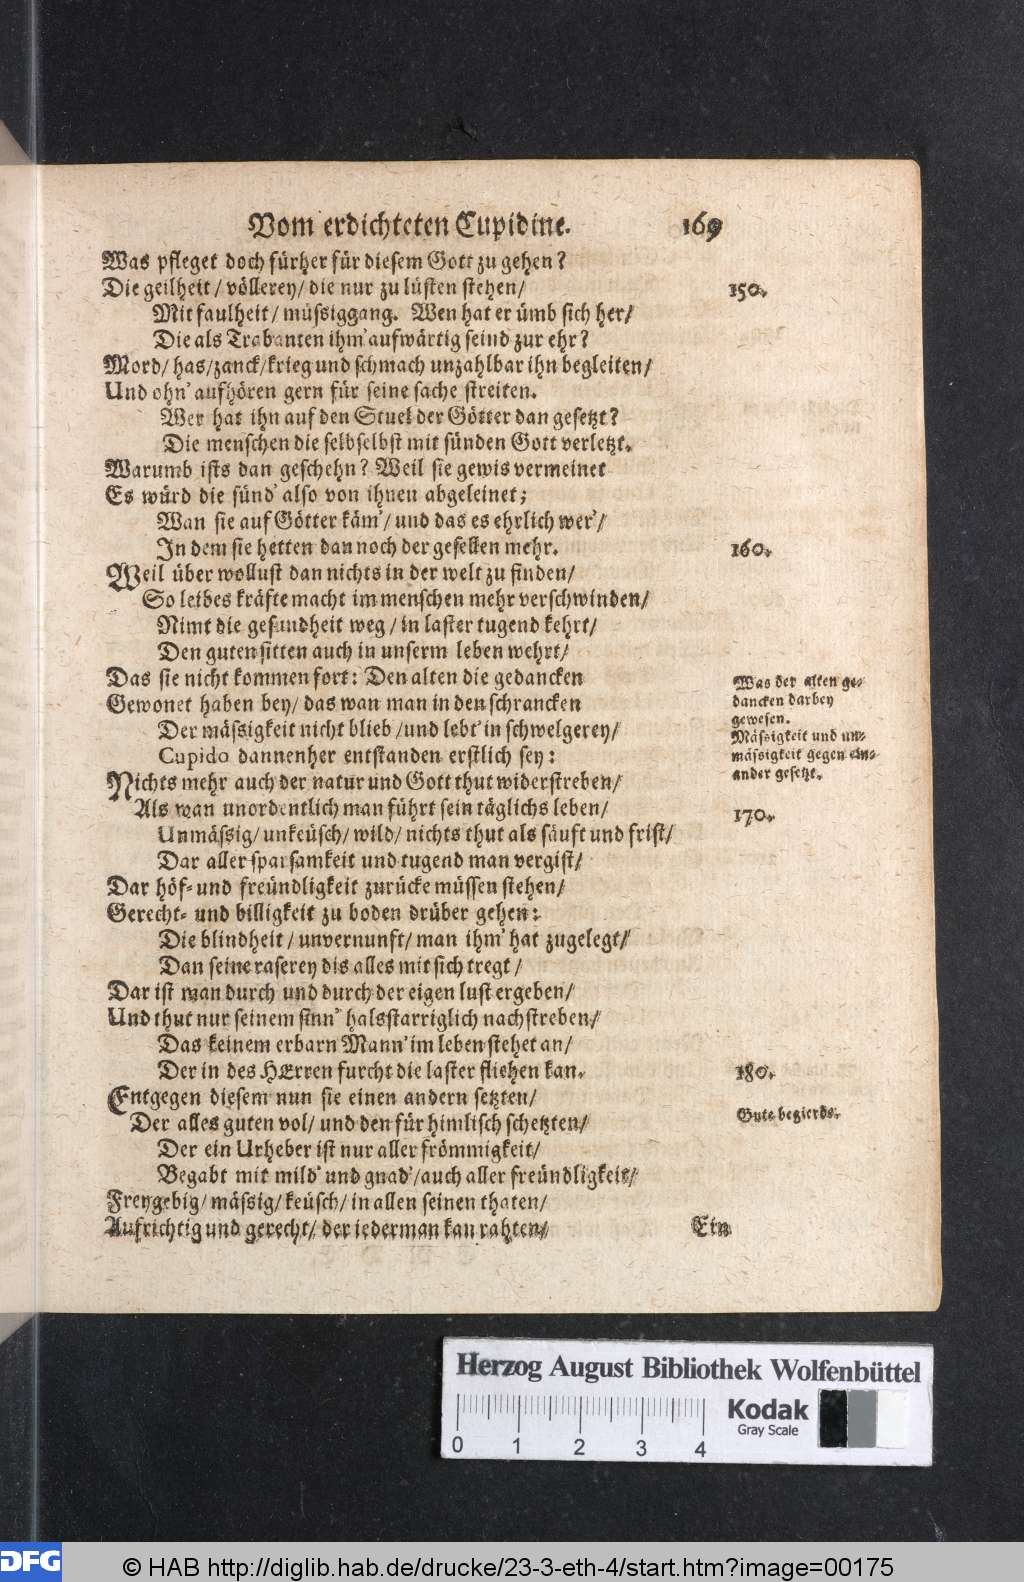 Vom erdichteten Cupidine. 169
Was pfleget doch fürher für diesem Gott zu gehen?
Die geilheit / völlerey / die nur zu lüsten stehen / 150.
Mit faulheit / müssiggang. Wen hat er ümb sich her /
Die als Trabanten ihm' aufwärtig seind zur ehr?
Mord / has / zanck / krieg und schmach unzahlbar ihn begleiten /
Und ohn' aufhören gern für seine sache streiten.
Wer hat ihn auf den Stuel der Götter dan gesetzt?
Die menschen die selbselbst mit sünden Gott verletzt.
Warumb ists dan geschehn? Weil sie gewis vermeinet
Es würd die sünd' also von ihnen abgeleinet;
Wan sie auf Götter käm' / und das es ehrlich wer' /
In dem sie hetten dannoch der gesellen mehr. 160.
Weil über wollust dan nichts in der welt zu finden /
So leibes kräfte macht im menschen mehr verschwinden /
Nimt die gesundheit weg / in laster tugend kehrt /
Den guten sitten auch in unserm leben wehrt /
Das sie nicht kommen fort: Den alten die gedancken
Gewonet haben bey / das wan man in den schrancken
Der mässigkeit nicht blieb / und lebt' in schwelgerey /
Cupido dannenher entstanden erstlich sey:
Was der alten ge-
dancken darbey
gewesen.
Mässigkeit und un-
mässigkeit gegen ein-
ander gesetzt.
Nichts mehr auch der natur und Gott thut widerstreben /
Als wan unordentlich man führt sein täglichs leben / 170.
Unmässig / unkeüsch / wild / nichts thut als säuft und frist /
Dar aller sparsamkeit und tugend man vergist /
Dar höf- und freündligkeit zurücke müssen stehen /
Gerecht- und billigkeit zu boden drüber gehen:
Die blindheit / unvernunft / man ihm' hat zugelegt /
Dan seine raserey dis alles mit sich tregt /
Dar ist man durch und durch der eigen lust ergeben /
Und thut nur seinem sinn' halsstarriglich nachstreben /
Das keinem erbarn Mann' im leben stehet an /
Der in des HErren furcht die laster fliehen kan. 180.
Entgegen diesem nun sie einen andern setzten /
Der alles guten vol / und den für himlisch schetzten / Gute begierde.
Der ein Urheber ist nur aller frömmigkeit /
Begabt mit mild' und gnad' / auch aller freündligkeit /
Freygebig / mässig / keüsch / in allen seinen thaten /
Aufrichtig und gerecht / der iederman kan rahten /
Ein
Herzog August Bibliothek Wolfenbüttel
0 1 2 3 4
Kodak
Gray Scale
DFG © HAB http://diglib.hab.de/drucke/23-3-eth-4/start.htm?image=00175